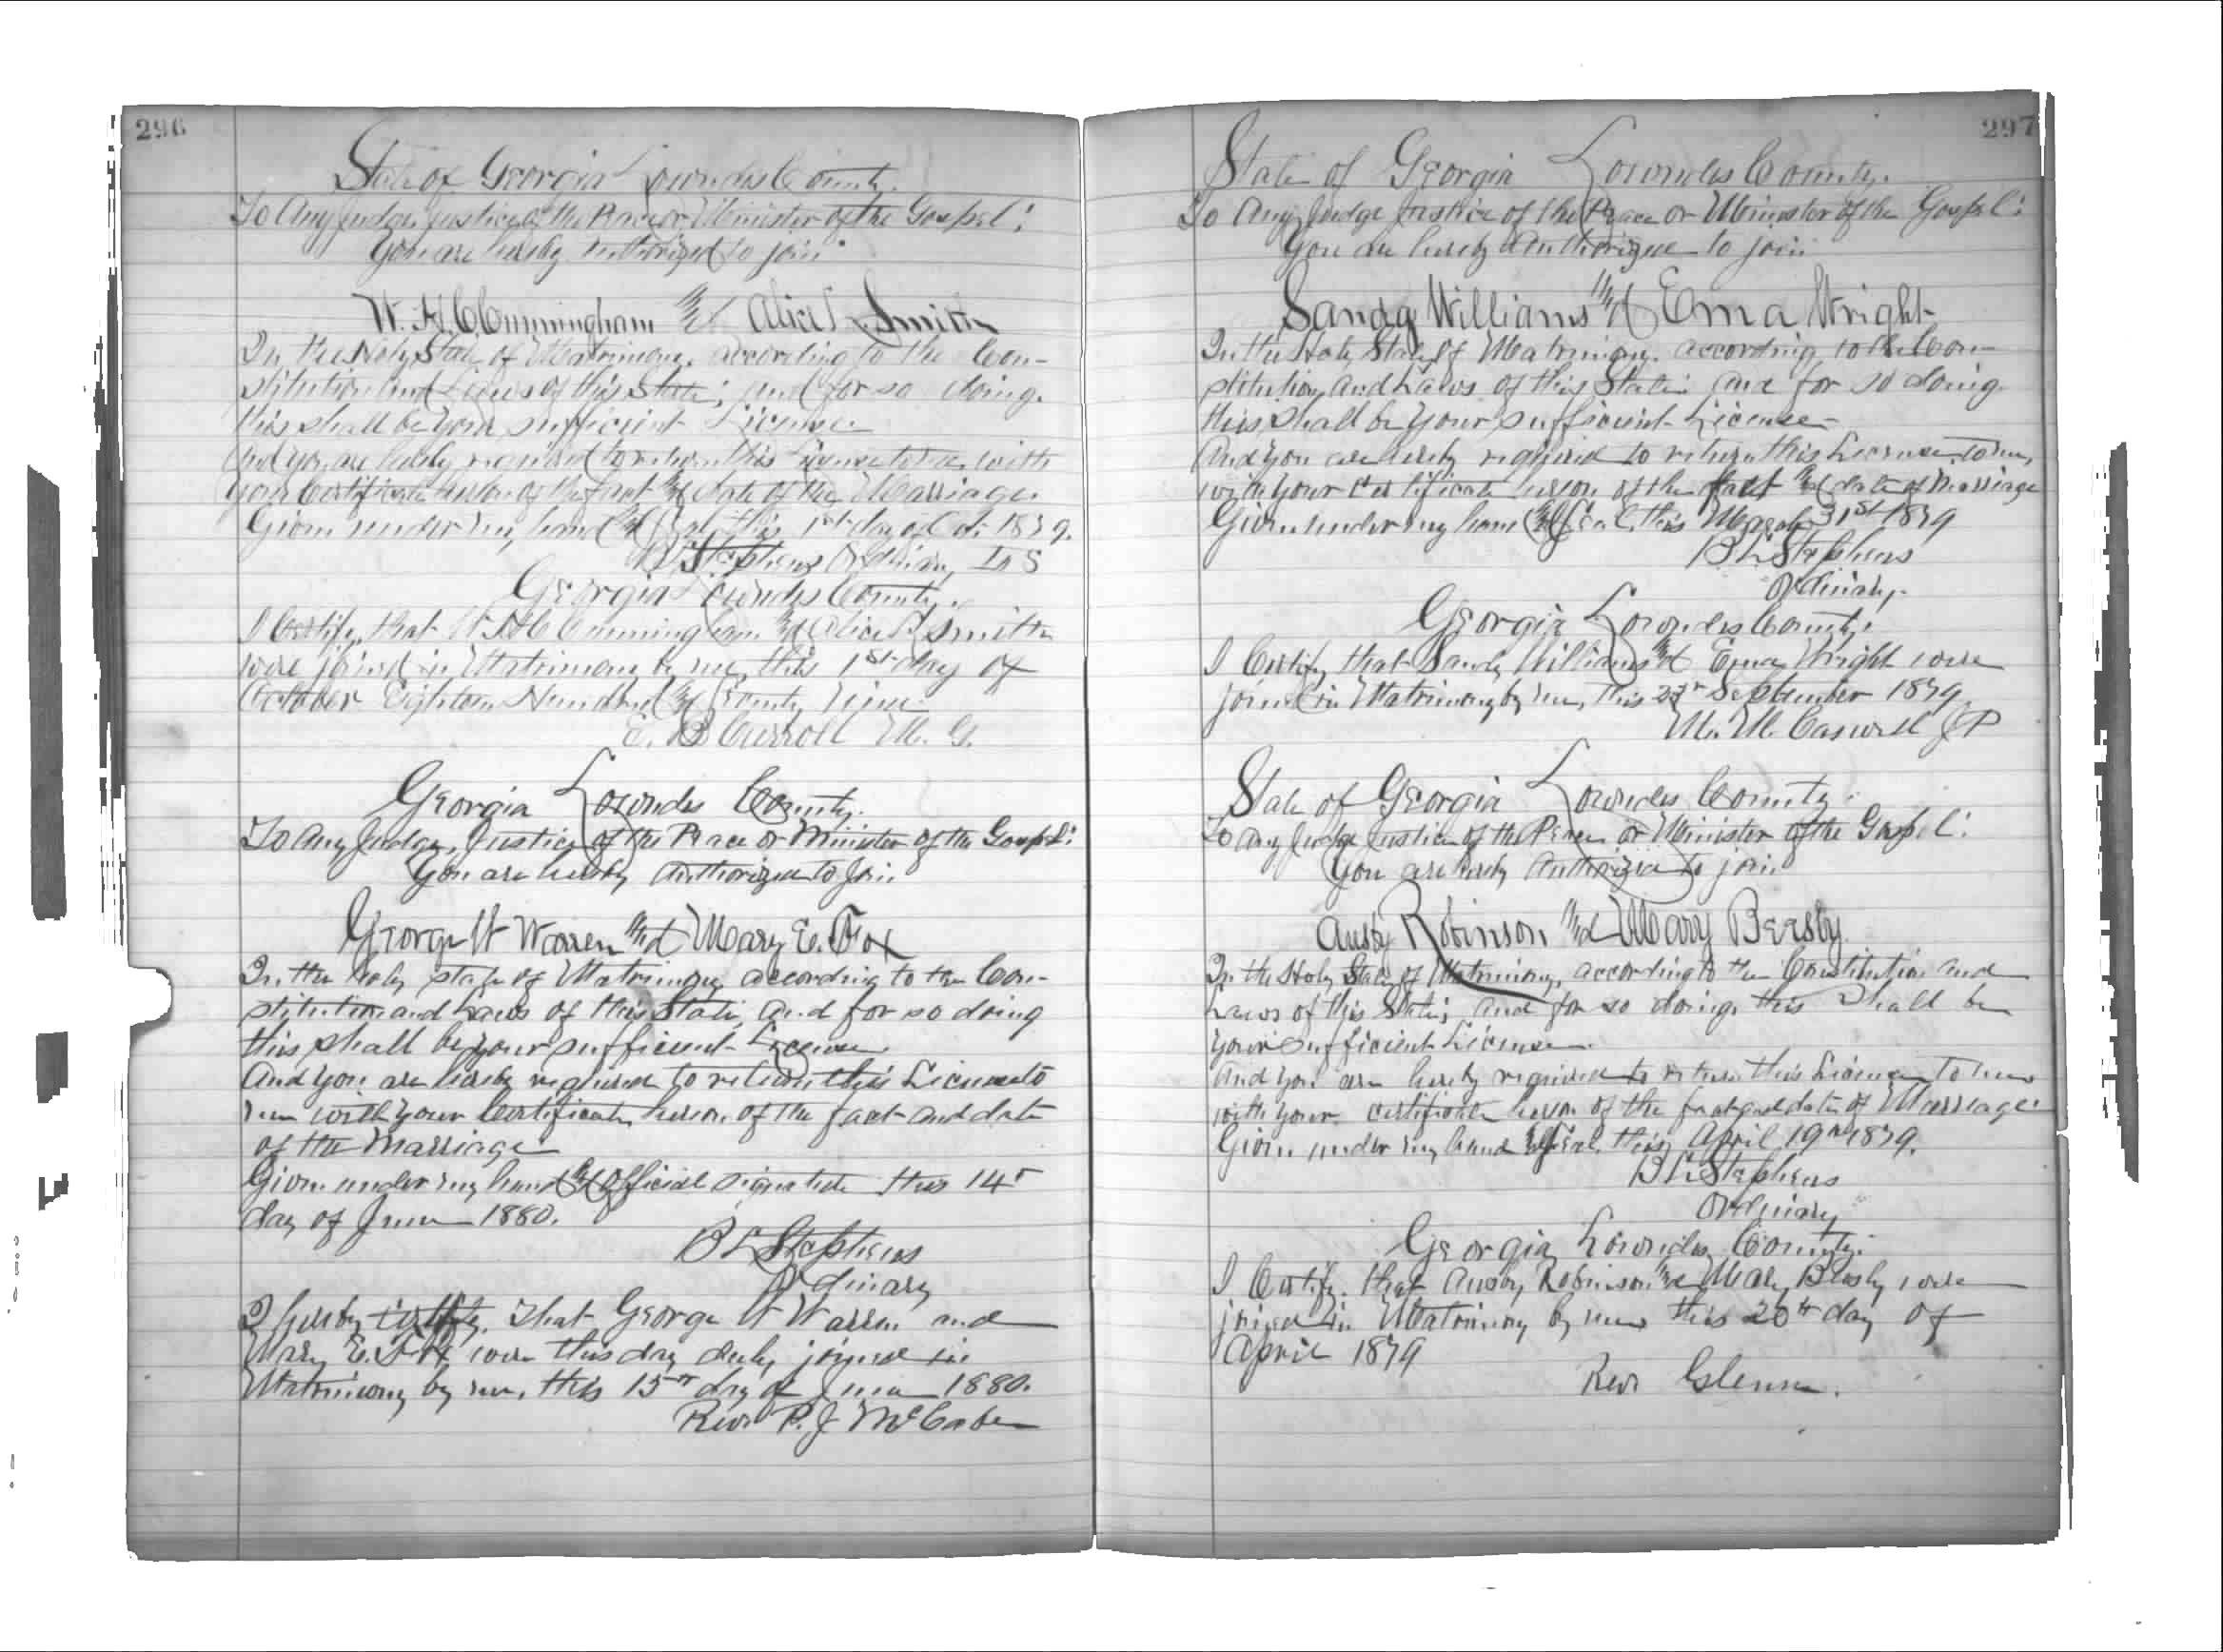 296
State of Georgia Lowndes County.
To Any Judge, Justice of the Peace or Minister of the Gospel:
You are hereby Authorized to join
W. H. C. Cunningham and Alice Smith
In the Holy State of Matrimony, according to the Con-
stitution and Laws of this State; and for so doing.
this shall be your sufficient License
And you are hereby required to return this License to me with
your Certificate hereon of the fact and date of the Marriage.
Given under my hand and Seal, this 1st day of Oct. 1879.
B L Stephens Ordinary LS
Georgia Lowndes County.
I Certify, that W. H. C Cunningham and Alice Smith
were joined in Matrimony by me, this 1st day of
October Eighteen Hundred and Seventy Nine
E. B Carroll M. G.
Georgia Lowndes County.
To Any Judge, Justice of the Peace or Minister of the Gospel:
You are hereby Authorized to Join
George W Warren and Mary E. Fox
In the holy state of Matrimony according to the Con-
stitution and Laws of this State, and for so doing
this shall be your sufficient License
And you are hereby required to return this License to
me with your Certificate hereon of the fact and date
of the Marriage
Given under my hand and Official signature this 14th
day of June 1880.
B L Stephens
Ordinary
I hereby certify, that George W Warren and
Mary E. Fox, were this day duly joined in
Matrimony by me, this 15th day of June 1880.
Rev. P. J McCabe
297
State of Georgia Lowndes County.
To Any Judge Justice of the Peace or Minister of the Gospel:
You are hereby Authorized to join
Sandy Williams and Ema Wright
In the Holy State of Matrimony, according to the Con-
stitution and Laws of this State: and for so doing.
this shall be your sufficient License
And you are hereby required to return this License to me,
with your certificate hereon of the fact and date of Marriage
Given under my hand and Seal, this March 31st 1879
B L Stephens
Ordinary.
Georgia Lowndes County.
I Certify that Sandy Williams and Ema Wright were
joined in Matrimony by me, this September 1879
M. M. Caswell JP
State of Georgia Lowndes County.
To Any Judge Justice of the Peace or Minister of the Gospel:
You are hereby Authorized to join
Ausby Robinson and Mary Beesby
In the Holy State of Matrimony, according to the Constitution and
Laws of this State; and for so doing, this shall be
your sufficient License.
And you are hereby required to return this License to me
with your certificate hereon of the fact and date of Marriage
Given under my hand and Seal, this April 19th 1879.
B L Stephens
Ordinary
Georgia Lowndes County.
I Certify, that Ausby Robinson and Mary Beesby were
joined in Matrimony by me this 20th day of
April 1879
Rev Glenn.